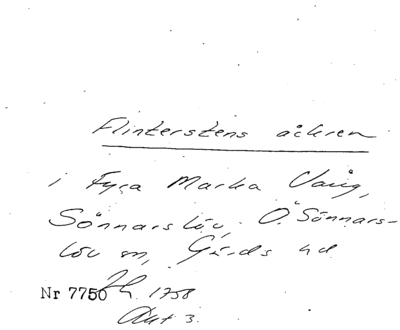 Flinterstens åckren
i Fyra Marka Vång,
Sönnarslöv, Ö. Sönnars-
löv sn, Gärds hd
Nr 7750 Lh. 1758
Akt 3.